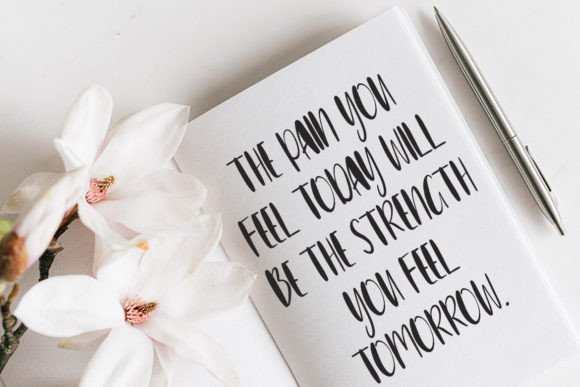 THE PAIN YOU
FEEL TODAY WILL
BE THE STRENGTH
YOU FEEL
TOMORROW.